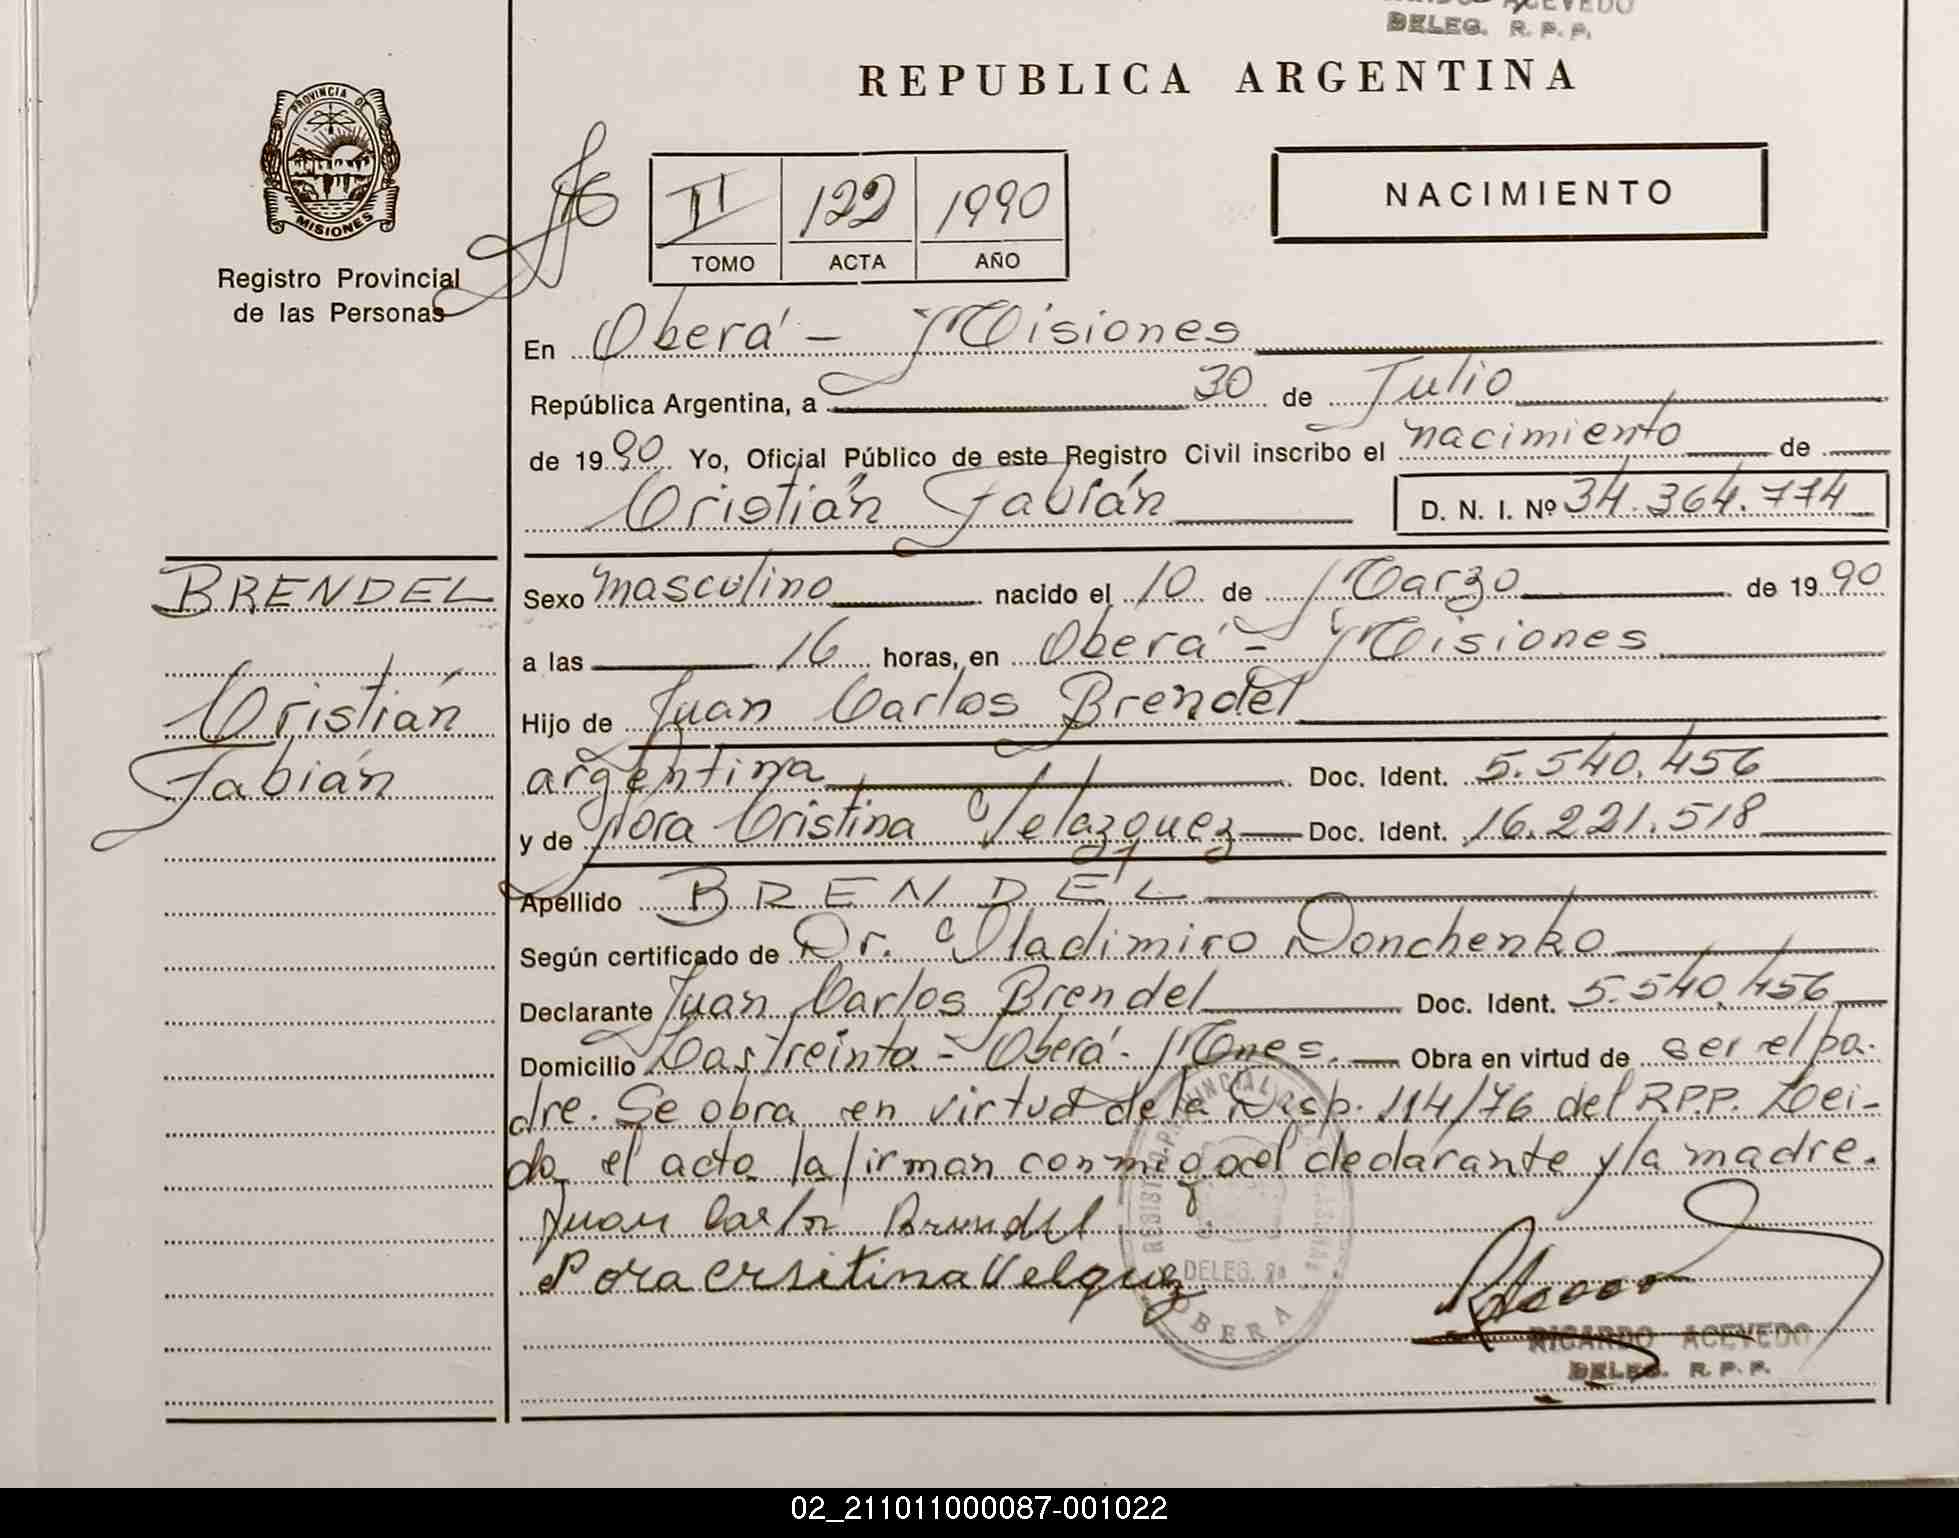 ACEVEDO
DELEG. R. P. P.
REPUBLICA ARGENTINA
PROVINCIA DE
MISIONES
Registro Provincial
de las Personas
II 122 1990
TOMO ACTA AÑO
NACIMIENTO
En Oberá - Misiones
República Argentina, a 30 de Julio
de 1990 Yo, Oficial Público de este Registro Civil inscribo el nacimiento de
Cristián Fabián D. N. I. Nº 34.364.774
BRENDEL
Cristián
Fabián
Sexo masculino nacido el 10 de Marzo de 1990
a las 16 horas, en Oberá - Misiones
Hijo de Juan Carlos Brendel
argentina Doc. Ident. 5.540.456
y de Nora Cristina Velazquez Doc. Ident. 16.221.518
Apellido BRENDEL
Según certificado de Dr. Vladimiro Donchenko
Declarante Juan Carlos Brendel Doc. Ident. 5.540.456
Domicilio Las treinta - Oberá - Mnes. Obra en virtud de ser el pa-
dre. Se obra en virtud de la Disp. 114/76 del R.P.P. Lei-
da el acta la firman conmigo el declarante y la madre.
Juan Carlos Brendel
Nora Crsitina Velquez
DELEG.
OBERA
RICARDO ACEVEDO
DELEG. R. P. P.
02_211011000087-001022